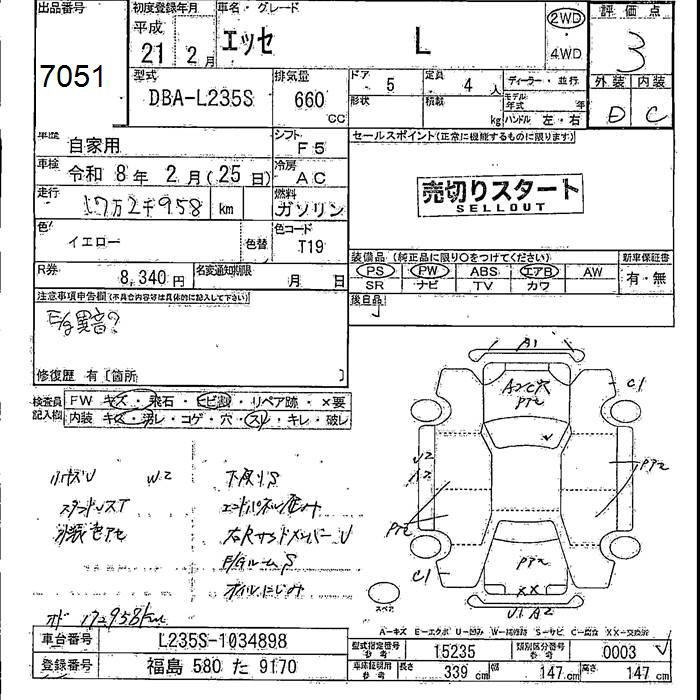 出品番号
7051
初度登録年月
平成
21年 2月
車名・グレード
エッセ L
2WD
4WD
評価点
3
外装 内装
D C
型式
DBA-L235S
排気量
660 CC
ドア 5
定員 4 人
形状
積載 kg
ディーラー・並行
モデル年式 年
ハンドル 左・右
車歴 自家用
シフト F5
車検 令和 8年 2月(25日)
冷房 AC
走行 17万2千958 km
燃料 ガソリン
色 イエロー 色替
色コード T19
R券 8,340円
名変通知期限 月 日
セールスポイント(正常に機能するものに限ります)
売切りスタート
SELLOUT
装備品(純正品に限り○をつけてください)
PS PW ABS エアB AW
SR ナビ TV カワ
新車保証書
有・無
後日品
注意事項申告欄(不具合内容等は具体的に記入して下さい)
E/g異音?
修復歴 有〔箇所 〕
検査員記入欄
FW キズ・飛石・ヒビ割・リペア跡・×要
内装 キズ・汚レ・コゲ・穴・スレ・キレ・破レ
A1
C1
A2C穴
PT2
U2
A2
PT2
PT2
C1
PT2
XX
U1 A2
スペア
W2
下廻りS
外装色アセ
右Rサイドメンバー U
E/gルームS
オイルにじみ
オド 172958km
A-キズ E-エクボ U-凹み W-補修跡 S-サビ C-腐食 XX-交換済
車台番号 L235S-1034898
登録番号 福島 580 た 9170
型式指定番号 参考 15235
類別区分番号 参考 0003
車体証明用 参考 長さ 339 cm 幅 147 cm 高さ 147 cm